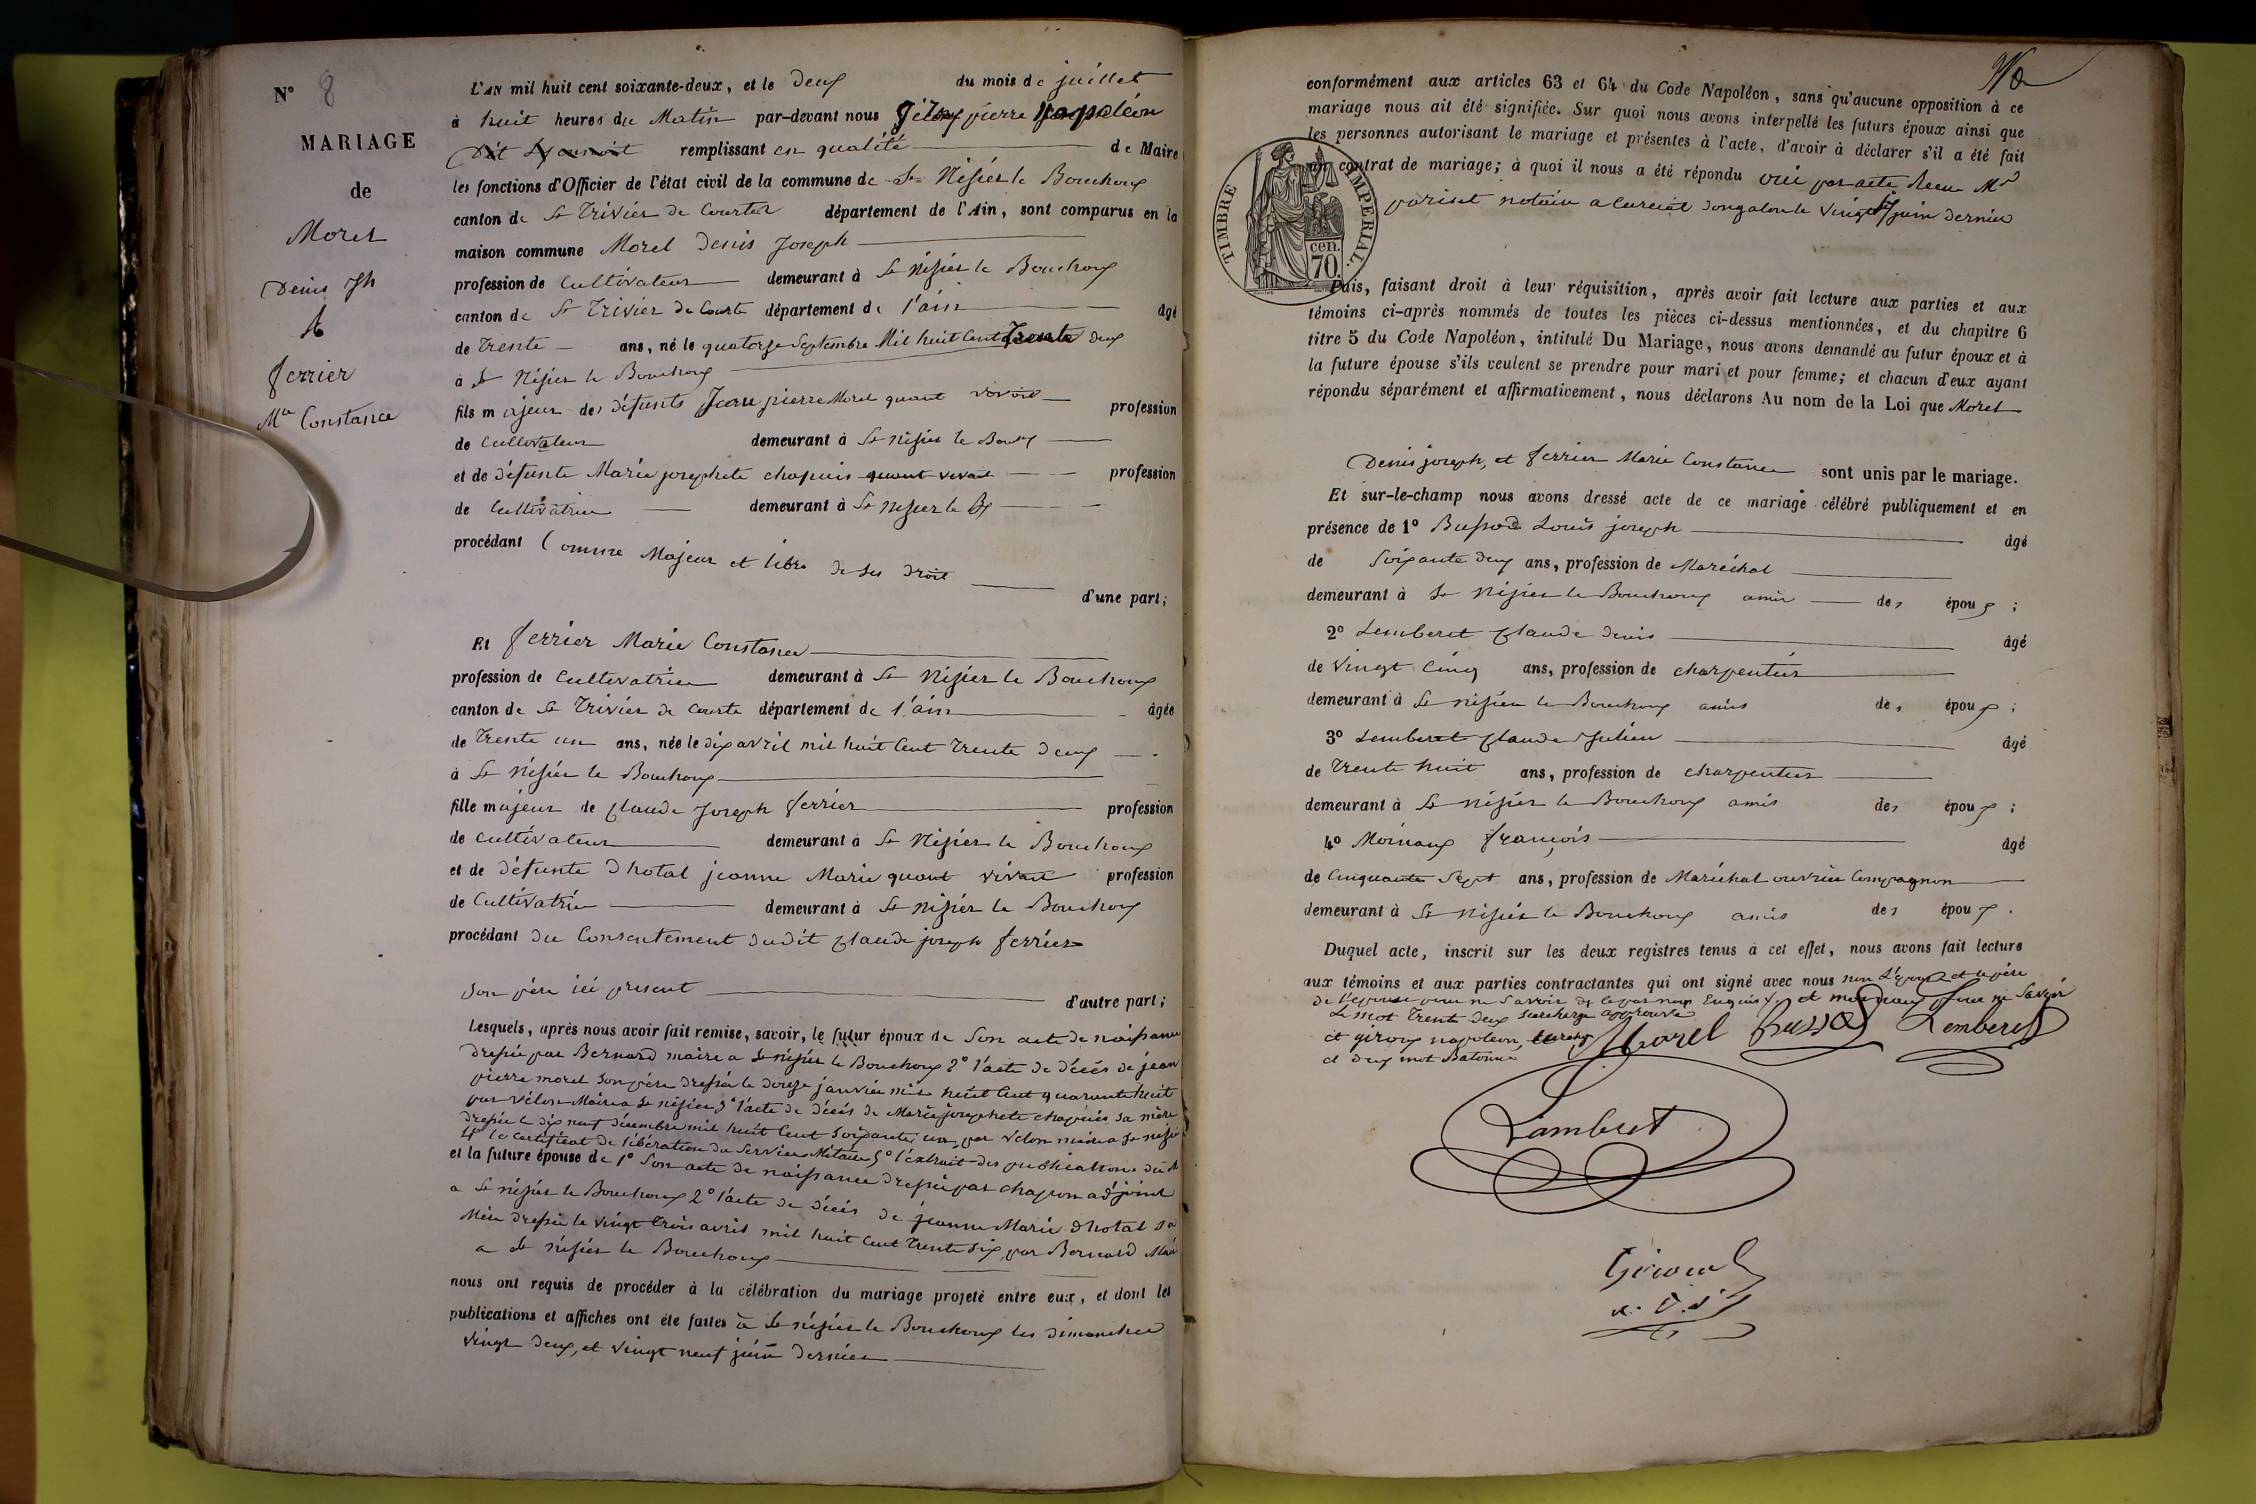 N° 8
MARIAGE
de
Morel
Denis Jh
&
ferrier
Mie Constance
L'AN mil huit cent soixante-deux, et le Deux du mois de juillet
à huit heures du Matin par-devant nous pierre Napoléon
remplissant en qualité de Maire
les fonctions d'Officier de l'état civil de la commune de St Nisier le Bouchoux
canton de St Trivier de Courtes département de l'Ain, sont comparus en la
maison commune Morel Denis Joseph
profession de Cultivateur demeurant à St Nisier le Bouchoux
canton de St Trivier de Courte département de l'ain âgé
de Trente ans, né le quatorze Septembre Mil huit Cent Trente deux
à St Nisier le Bouchoux
fils majeur des défunts Jean pierre Morel quant vivoit profession
de Cultivateur demeurant à St nisier le Boux
et de défunte Marie josephete chapuis quant vivait profession
de Cultivatrice demeurant à St nisier le Bx
procédant Comme Majeur et libre de ses droit
d'une part;
Et ferrier Marie Constance
profession de Cultivatrice demeurant à St Nisier le Bouchoux
canton de St Trivier de Courte département de l'ain âgée
de Trente un ans, née le dix avril mil huit Cent Trente deux
à St Nisier le Bouchoux
fille majeur de Claude Joseph ferrier profession
de Cultivateur demeurant à St Nisier le Bouchoux
et de défunte Dhotal jeanne Marie quant vivait profession
de Cultivatrice demeurant à St Nisier le Bouchoux
procédant du Consentement dudit Claude joseph ferrier
Son père ici present d'autre part;
Lesquels, après nous avoir fait remise, savoir, le futur époux de Son acte de naissance
dressé par Bernard maire a St nisier le Bouchoux 2° l'acte de décés de jean
pierre morel Son père dressé le douze janvier mil huit Cent quarante huit
par Velon Maire a St nisier 3° l'acte de décés de Marie josephete chapuis sa mère
dressé le dix neuf décembre mil huit Cent Soixante un par Velon maire a St nisier
4° le certificat de libération du Service Militaire 5° l'extrait des publications
et la future épouse de 1° Son acte de naissance dressé par chapon adjoint
a St nisier le Bouchoux 2° l'acte de décés de jeanne Marie Dhotal sa
Mère dressé le vingt trois avril mil huit Cent trente six par Bernard Maire
a St nisier le Bouchoux
nous ont requis de procéder à la célébration du mariage projeté entre eux, et dont les
publications et affiches ont été faites à St nisier le Bouchoux les dimanches
vingt deux, et vingt neuf juin dernier
conformément aux articles 63 et 64 du Code Napoléon, sans qu'aucune opposition à ce
mariage nous ait été signifiée. Sur quoi nous avons interpellé les futurs époux ainsi que
les personnes autorisant le mariage et présentes à l'acte, d'avoir à déclarer s'il a été fait
un contrat de mariage; à quoi il nous a été répondu oui par acte Recu Me
notaire a Curciat dongalon le Vingt juin dernier
TIMBRE IMPERIAL.
70 cen.
Puis, faisant droit à leur réquisition, après avoir fait lecture aux parties et aux
témoins ci-après nommés de toutes les pièces ci-dessus mentionnées, et du chapitre 6
titre 5 du Code Napoléon, intitulé Du Mariage, nous avons demandé au futur époux et à
la future épouse s'ils veulent se prendre pour mari et pour femme; et chacun d'eux ayant
répondu séparément et affirmativement, nous déclarons Au nom de la Loi que Morel
Denis joseph, et ferrier Marie Constance sont unis par le mariage.
Et sur-le-champ nous avons dressé acte de ce mariage célébré publiquement et en
présence de 1° Bussod Louis joseph âgé
de Soixante deux ans, profession de Maréchal
demeurant à St Nisier le Bouchoux amis des époux;
2° Lemberet Claude denis âgé
de Vingt Cinq ans, profession de charpentier
demeurant à St nisier le Bouchoux amis des époux;
3° Lemberet Claude Julien âgé
de Trente huit ans, profession de charpentier
demeurant à St nisier le Bouchoux amis des époux;
4° Moinaux françois âgé
de Cinquante Sept ans, profession de Maréchal ouvrier Compagnon
demeurant à St nisier le Bouchoux amis des époux.
Duquel acte, inscrit sur les deux registres tenus à cet effet, nous avons fait lecture
aux témoins et aux parties contractantes qui ont signé avec nous non L'épouse et le père
de l'épouse pour ne Savoir de ce par nous Enquis et moinaux pour ne Savoir
Le mot Trente deux Surcharge approuvé
et giroux napoleon,
et deux mot Batonné
Morel Bussod Lemberet
Lambert